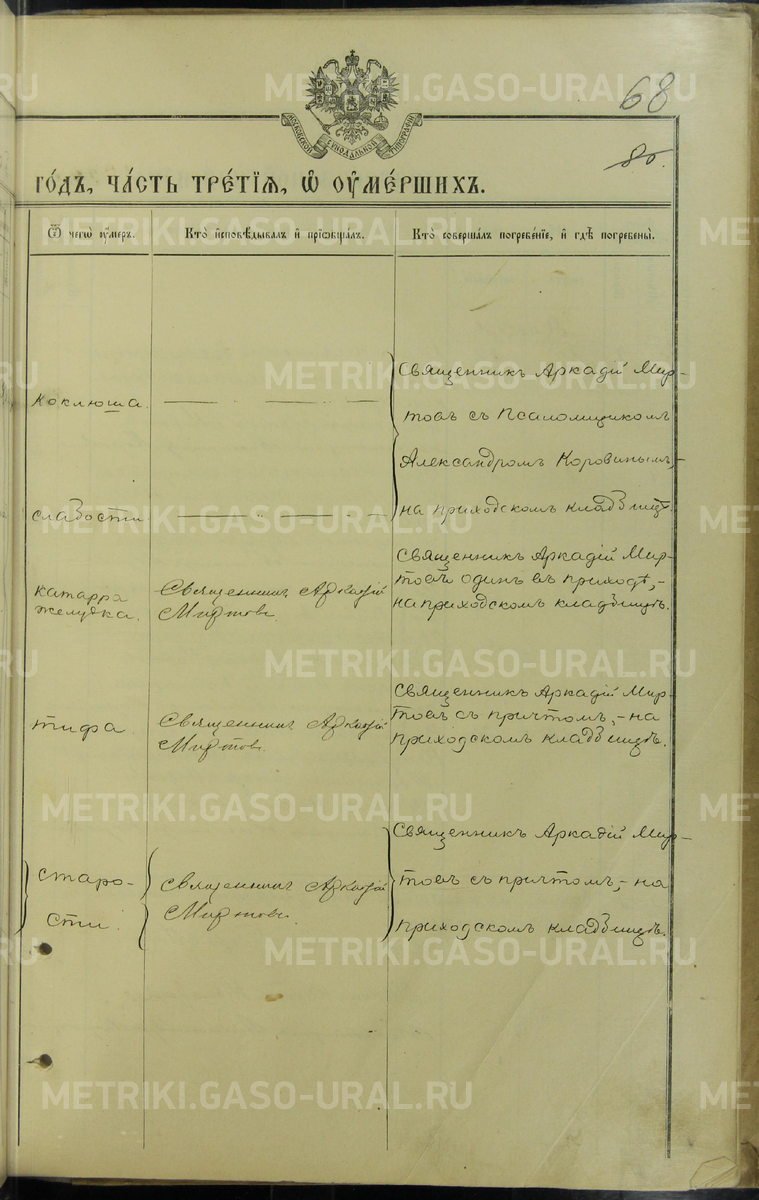 68
80.
МОСКОВСКОЙ СѴНОДАЛЬНОЙ ТИПОГРАФІИ
го́дъ, ча́сть тре́тїѧ, ѡ҆ ᲂу҆ме́ршихъ.
Ѿ чегѡ̀ ᲂу҆́меръ.
Кто̀ и҆сповѣ́дывалъ и҆ прїѡбща́лъ.
Кто̀ соверша́лъ погребе́нїе, и҆ гдѣ̀ погребены̀.
коклюша.
Священникъ Аркадій Мир-
товъ съ Псаломщикомъ
Александромъ Коровинымъ,-
на приходскомъ кладбищѣ.
слабости
катарра
желудка.
Священникъ Аркадій
Миртовъ
Священникъ Аркадій Мир-
товъ одинъ въ приходѣ,-
на приходскомъ кладбищѣ.
тифа
Священникъ Аркадій
Миртовъ.
Священникъ Аркадій Мир-
товъ съ причтомъ,-на
приходскомъ кладбищѣ.
старо-
сти.
Священникъ Аркадій
Миртовъ.
Священникъ Аркадій Мир-
товъ съ причтомъ,-на
приходскомъ кладбищѣ.
METRIKI.GASO-URAL.RU